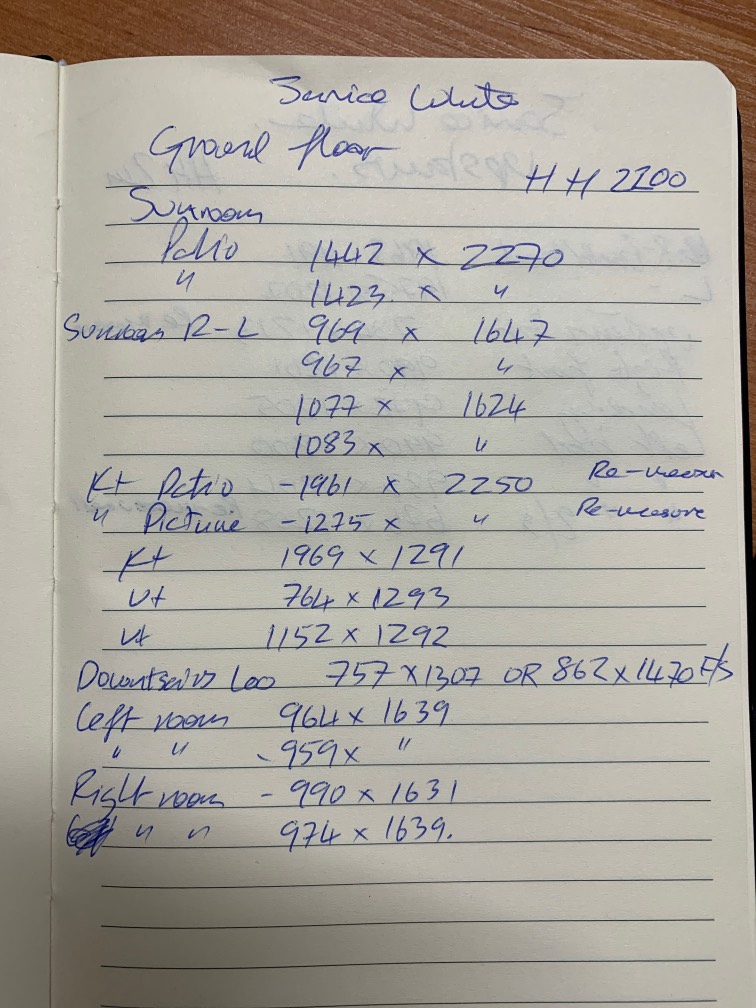 Janice White
Ground floor
HH 2200
Sunroom
Patio 1442 x 2270
" 1423 x "
Sunroom R-L 969 x 1647
967 x "
1077 x 1624
1083 x "
Kt Patio - 1961 x 2250 Re-measure
" Picture - 1275 x " Re-measure
Kt 1969 x 1291
Ut 764 x 1293
Ut 1152 x 1292
Downstairs Loo 757 x 1307 OR 862 x 1470 F/S
Left room 964 x 1639
" " - 959 x "
Right room - 990 x 1631
" " 974 x 1639.